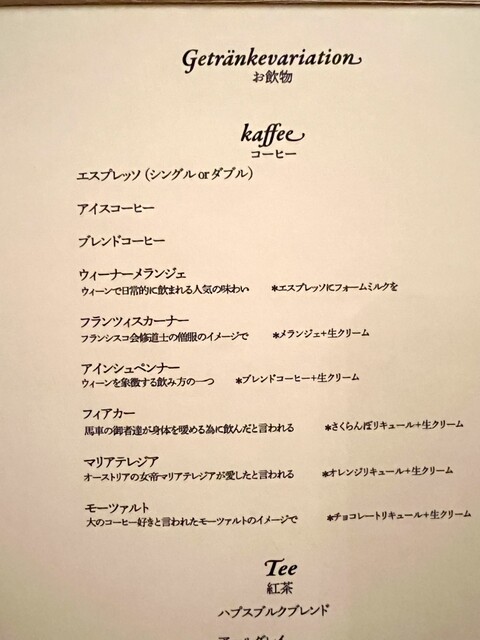 Getränkevariation
お飲物
kaffee
コーヒー
エスプレッソ（シングル or ダブル）
アイスコーヒー
ブレンドコーヒー
ウィーナーメランジェ
ウィーンで日常的に飲まれる人気の味わい ＊エスプレッソにフォームミルクを
フランツィスカーナー
フランシスコ会修道士の僧服のイメージで ＊メランジェ＋生クリーム
アインシュペンナー
ウィーンを象徴する飲み方の一つ ＊ブレンドコーヒー＋生クリーム
フィアカー
馬車の御者達が身体を暖める為に飲んだと言われる ＊さくらんぼリキュール＋生クリーム
マリアテレジア
オーストリアの女帝マリアテレジアが愛したと言われる ＊オレンジリキュール＋生クリーム
モーツァルト
大のコーヒー好きと言われたモーツァルトのイメージで ＊チョコレートリキュール＋生クリーム
Tee
紅茶
ハプスブルクブレンド